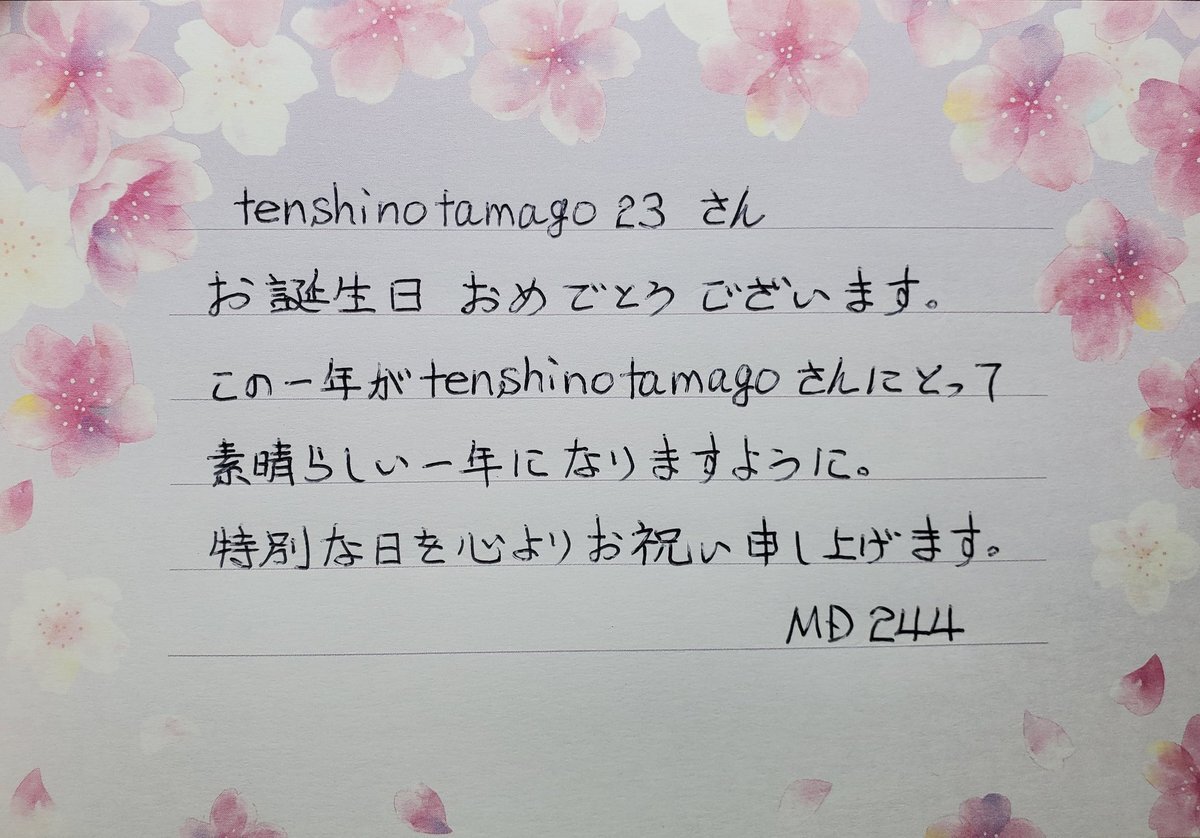 tenshinotamago 23 さん
お誕生日 おめでとうございます。
この一年がtenshinotamagoさんにとって
素晴らしい一年になりますように。
特別な日を心よりお祝い申し上げます。
MD 244